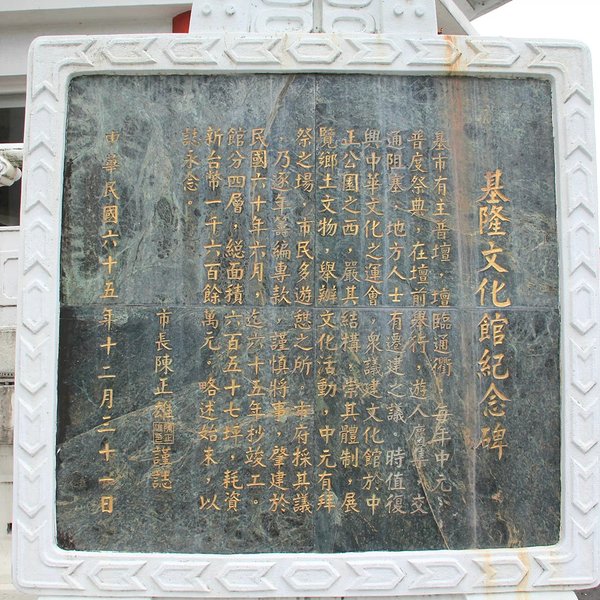 基隆文化館紀念碑
基市有主普壇，壇臨通衢，每年中元，
普度祭典，在壇前舉行，遊人麕集，交
通阻塞，地方人士有遷建之議。時值復
興中華文化之運會，眾議建文化館於中
正公園之西，嚴其結構，崇其體制，展
覽鄉土文物，舉辦文化活動，中元有拜
祭之場，市民多遊憩之所。本府採其議
，乃逐年籌編專款，謹慎將事，肇建於
民國六十年六月，迄六十五年抄竣工。
館分四層，總面積六百五十七坪，耗資
新台幣一千六百餘萬元。略述始末，以
誌永念。
市長陳正雄謹誌
中華民國六十五年十二月三十一日